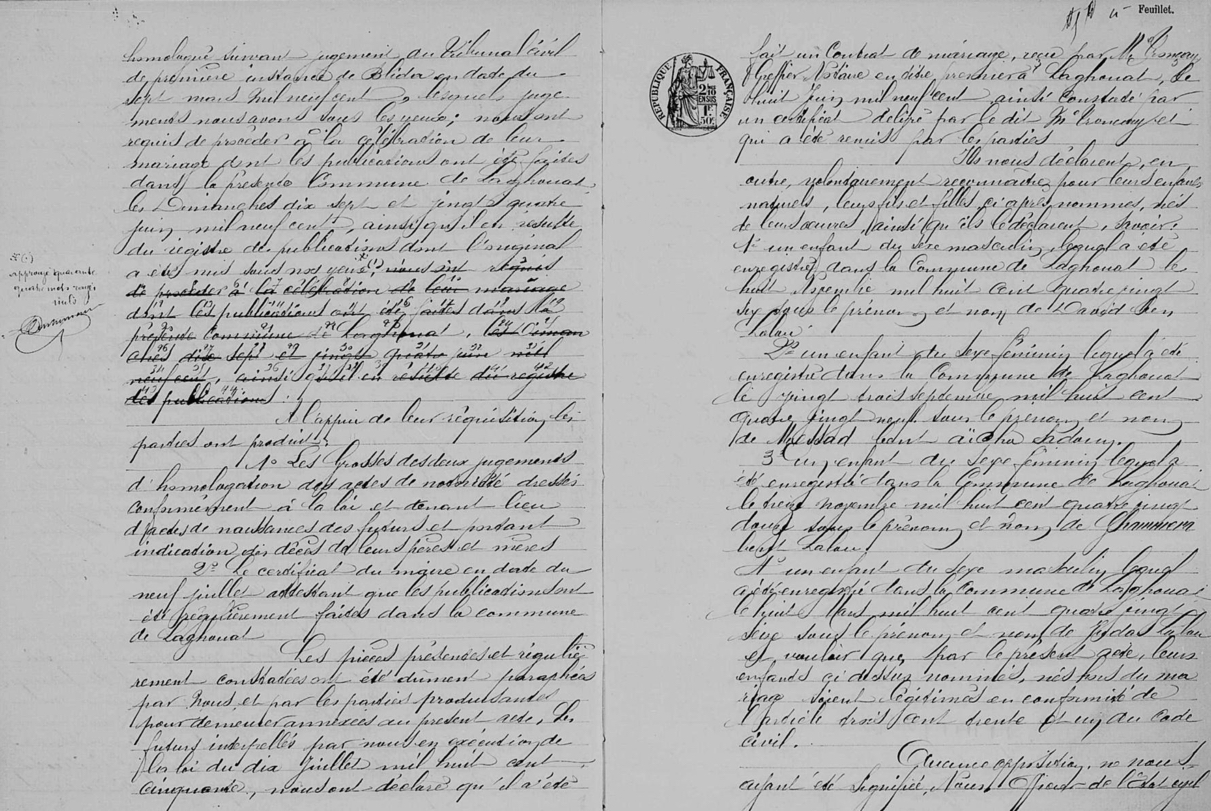 homologué suivant jugement du Tribunal Civil
de première instance de Blida en date du
sept mars mil neuf cent, lesquels juge
ments nous avons sous les yeux; nous ont
requis de procéder à la célébration de leur
mariage dont les publications ont été faites
dans la présente Commune de Laghouat
les Dimanches dix sept et vingt quatre
juin mil neuf cent, ainsi qu'il en résulte
du registre de publications dont l'original
a été mis sous nos yeux; nous ont requis
de procéder à la célébration de leur mariage
dont les publications ont été faites dans la
présente Commune de Laghouat, les Diman
ches dix sept et vingt quatre juin mil
neuf cent, ainsi qu'il en résulte du registre
des publications :
A l'appui de leur réquisition, les
parties ont produit:
1o Les Grosses des deux jugements
d'homologation des actes de notoriété dressés
conformément à la loi et tenant lieu
d'actes de naissances des futurs et portant
indication des décès de leurs pères et mères
2o Le certificat du maire en date du
neuf juillet attestant que les publications ont
été régulièrement faites dans la commune
de Laghouat
Les pièces présentées et réguliè
rement constatées ont été dument paraphées
par Nous et par les parties produisantes
pour demeurer annexées au présent acte. Les
futurs interpellés par nous en exécution de
la loi du dix Juillet mil huit cent
cinquante, nous ont déclaré qu'il a été
approuvé quarante
quatre mots rayés
nuls
Feuillet.
RÉPUBLIQUE FRANÇAISE
fait un Contrat de mariage, reçu par Me
Greffier Notaire en titre premier à Laghouat, le
huit Juin mil neuf cent ainsi constaté par
un certificat délivré par le dit Me et
qui a été remis par les parties
Ils nous déclarent, en
outre, volontairement reconnaître pour leurs enfants
naturels, leurs fils et filles ci après nommés, nés
de leurs œuvres, ainsi qu'ils le déclarent, savoir:
1o un enfant du sexe masculin, lequel a été
enregistré dans la Commune de Laghouat le
huit mil huit cent quatre vingt
six sous le prénom et nom de David Ben
Lalou
2o un enfant du sexe féminin lequel a été
enregistré dans la Commune de Laghouat
le vingt trois septembre mil huit cent
quatre vingt neuf sous le prénom et nom
de Messad bent
3o un enfant du sexe féminin lequel a
été enregistré dans la Commune de Laghouat
le treize novembre mil huit cent quatre vingt
douze sous le prénom et nom de
bent Lalou.
4o un enfant du sexe masculin lequel
a été enregistré dans la Commune de Laghouat
le huit Mars mil huit cent quatre vingt
seize sous le prénom et nom de Lalou
et vouloir que, par le présent acte, leurs
enfants ci dessus nommés, nés hors du ma
riage soient légitimés en conformité de
l'article trois cent trente et un du Code
civil.
Aucune opposition, ne nous
ayant été signifiée, Nous Officier de l'Etat civil